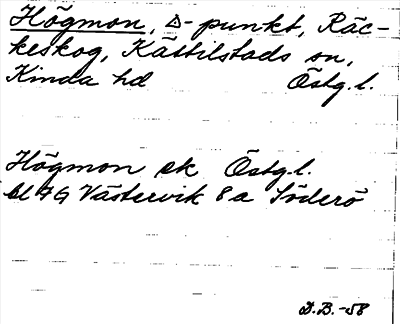 Högmon, △-punkt, Räc-
keskog, Kättilstads sn,
Kinda hd Östg.l.
Högmon ek Östg.l.
bl 7G Västervik 8a Söderö
D.B.-58